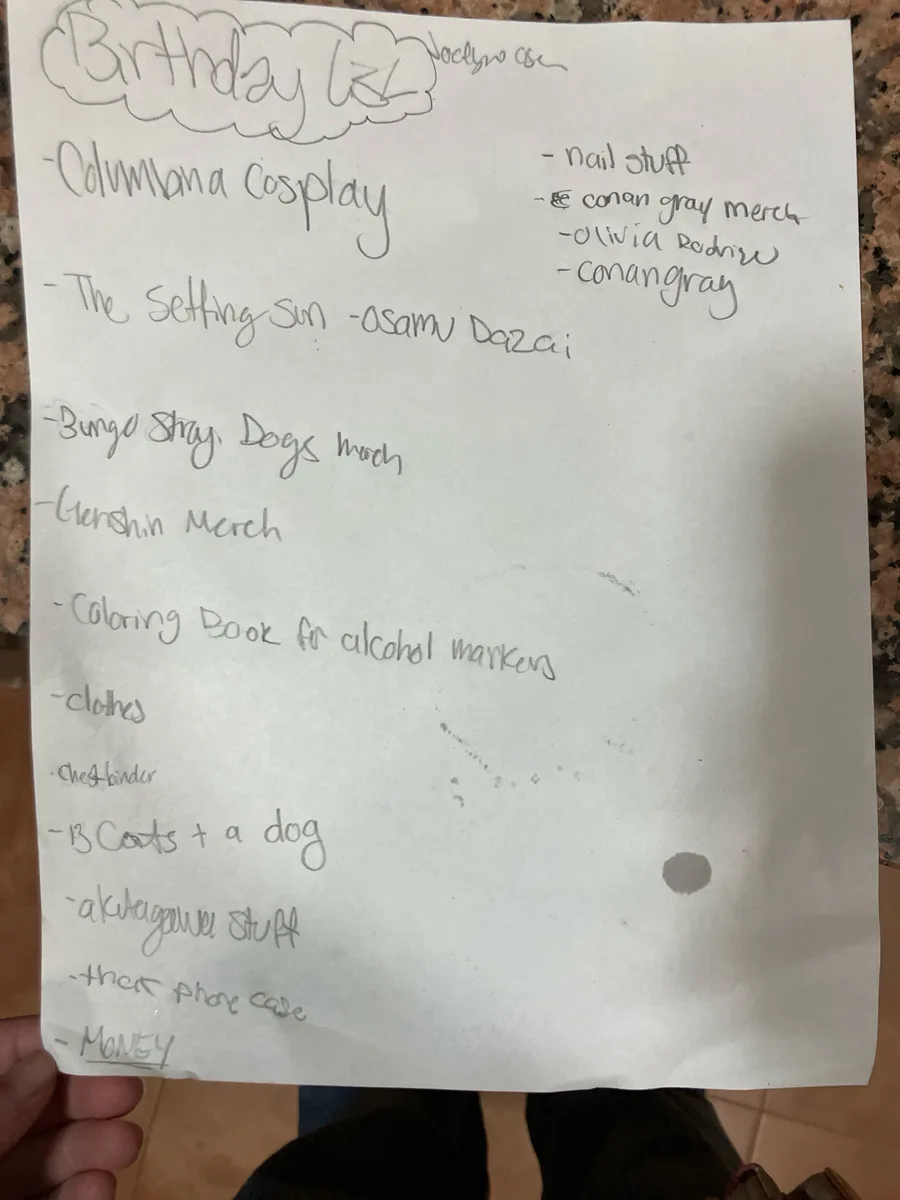 Birthday list
- Columbina Cosplay
- The Setting Sun - Osamu Dazai
- Bungo Stray Dogs merch
- Genshin Merch
- Coloring Book for alcohol markers
- clothes
- Chest binder
- 13 Cats + a dog
- akutagawa stuff
- that phone case
- MONEY
- nail stuff
- conan gray merch
- Olivia Rodrigo
- conan gray